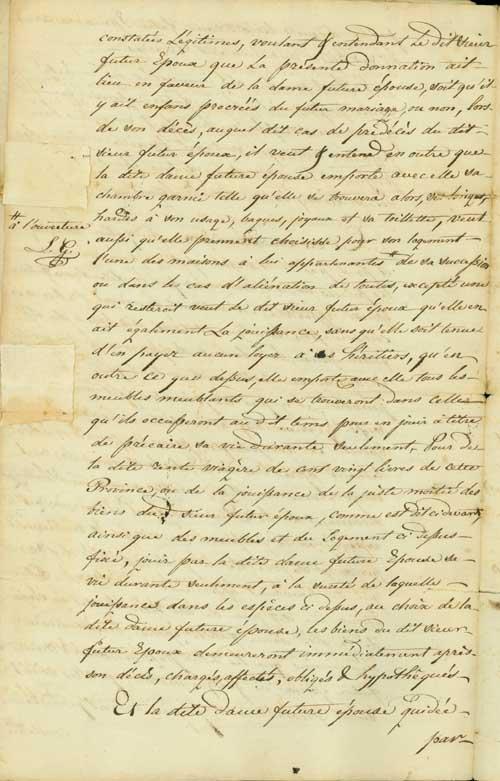 constatées Légitimes, voulant & entendant Le dit Sieur
futur Epoux que La présente Donnation ait
lieu en faveur de la dame future épouse, soit qu'il
y ait enfans procréés du futur mariage ou non, lors
de son décès, auquel dit cas de prédécès du dit
sieur futur époux, il veut & entend en outre que
la dite dame future épouse emporte avec elle sa
chambre garnie telle qu'elle se trouvera alors, ses linges,
hardes à son usage, bagues, joyaux et sa toilette, veut
aussi qu'elle prenne et choisisse pour son logement
l'une des maisons à lui appartenantes # de sa succession
# à l'ouverture
L. G.
ou dans le cas d'aliénation de toutes, excepté une
qui resteroit veut le dit sieur futur époux qu'elle en
ait également La jouissance, sans qu'elle soit tenue
d'en payer aucun loyer à ses héritiers, qu'en
outre ce que dessus, elle emporte avec elle tous les
meubles meublants qui se trouveront dans celle
qu'ils occuperont au dit tems pour en jouir à titre
de précaire sa vie durante seulement, Pour de
la dite rente viagère de cent vingt livres de cette
Province, ou de la jouissance de la juste moitié des
biens du d. sieur futur époux, comme est dit ci devant
ainsi que des meubles et du Logement ci dessus
fixé, jouir par la dite dame future Epouse sa
vie durante seulement, à la sureté de laquelle
jouissance dans les espèces ci dessus, au choix de la
dite dame future épouse, les biens du dit sieur
futur Epoux demeureront immédiatement après
son décès, chargés, affectés, obligés & hypothéqués
Et la dite dame future épouse guidée
par